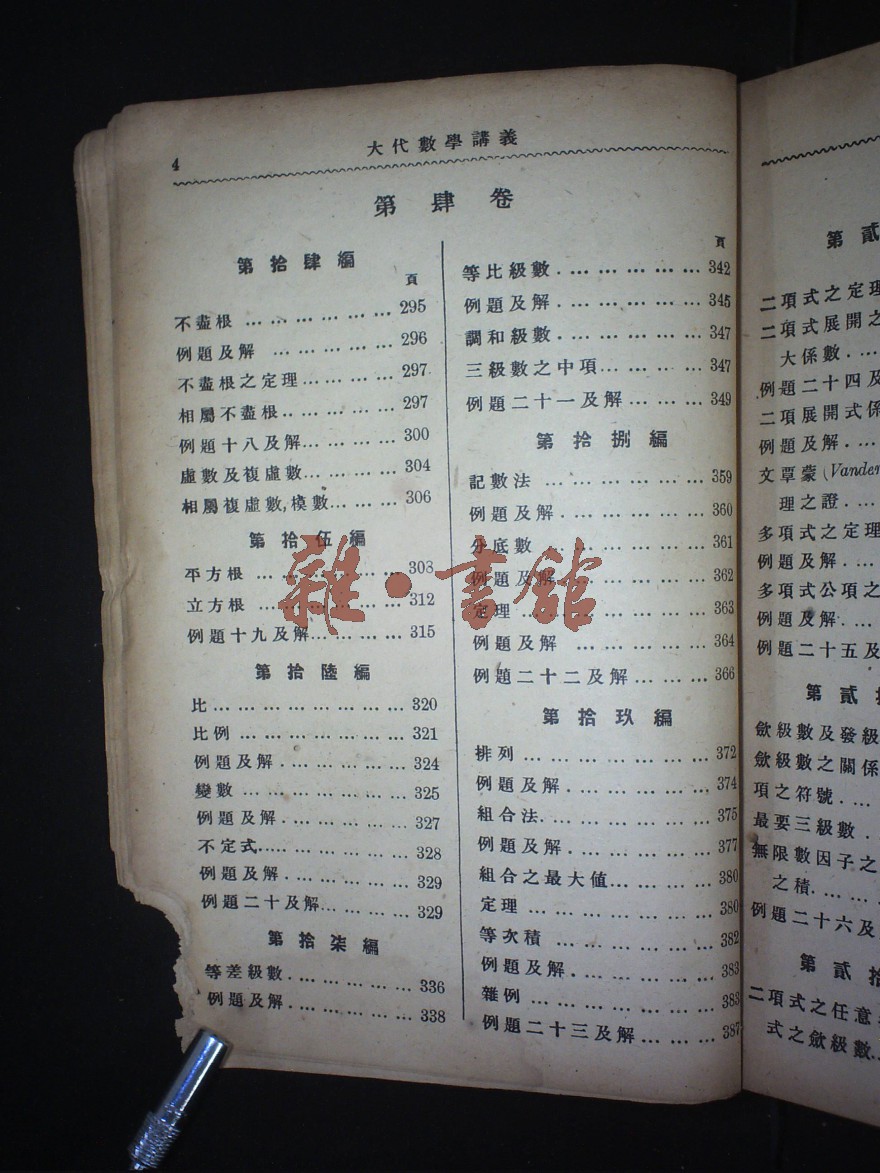 4
大代數學講義
第肆卷
第拾肆編
頁
不盡根 … … … … … … 295
例題及解 … … … … … 296
不盡根之定理… … … … 297
相屬不盡根… … … … … 297
例題十八及解… … … … 300
虛數及複虛數… … … … 304
相屬複虛數,模數… … … 306
第拾伍編
平方根 … … … … … … 303
立方根 … … … … … … 312
例題十九及解… … … … 315
第拾陸編
比… … … … … … … … 320
比例 … … … … … … … 321
例題及解 . … … … … … 324
變數 … … … … … … … 325
例題及解 . … … … … … 327
不定式… … … … … … 328
例題及解 . … … … … … 329
例題二十及解… … … … 329
第拾柒編
等差級數 . … … … … … 336
例題及解 . … … … … … 338
頁
等比級數 . … … … … … 342
例題及解 . … … … … … 345
調和級數 . … … … … … 347
三級數之中項… … … … 347
例題二十一及解 … … … 349
第拾捌編
記數法 … … … … … … 359
例題及解 . … … … … … 360
分底數 … … … … … … 361
例題及解 . … … … … … 362
定理 … … … … … … … 363
例題及解 … … … … … 364
例題二十二及解 … … … 366
第拾玖編
排列 … … … … … … … 372
例題及解 . … … … … … 374
組合法. … … … … … … 375
例題及解 . … … … … … 377
組合之最大値… … … … 380
定理 … … … … … … … 380
等次積 … … … … … … 382
例題及解 . … … … … … 383
雜例 … … … … … … … 383
例題二十三及解 … … … 387
雜·書館
第貳
二項式之定理
二項式展開之
大係數 . …
例題二十四及
二項展開式係
例題及解 . …
文覃蒙 (Vander
理之證 . …
多項式之定理
例題及解 . …
多項式公項之
例題及解 . …
例題二十五及
第貳
斂級數及發級
斂級數之關係
項之符號 . …
最要三級數 .
無限數因子之
之積. …
例題二十六及
第貳拾
二項式之任意
式之斂級數